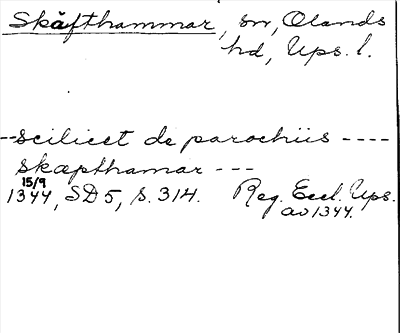 Skäfthammar, sn, Olands
hd, Ups. l.
--scilicet de parochiis ----
skæpthamar ---
15/9
1344, SD 5, s. 314. Reg. Eccl. Ups.
av 1344.